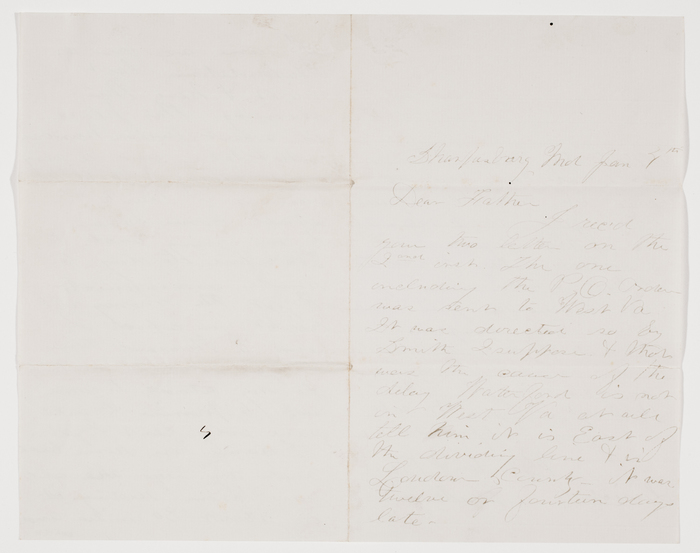 Sharpsburg Md Jan 7th
Dear Father
I recvd
your two letter on the
2nd inst. The one
including the P.O. Order
was sent to West Va
It was directed so by
Smith I suppose & that
was the cause of the
delay Waterford is not
in West Va at all
tell him it is East of
the dividing line & is
Loudon County it was
twelve or fourteen days
late.